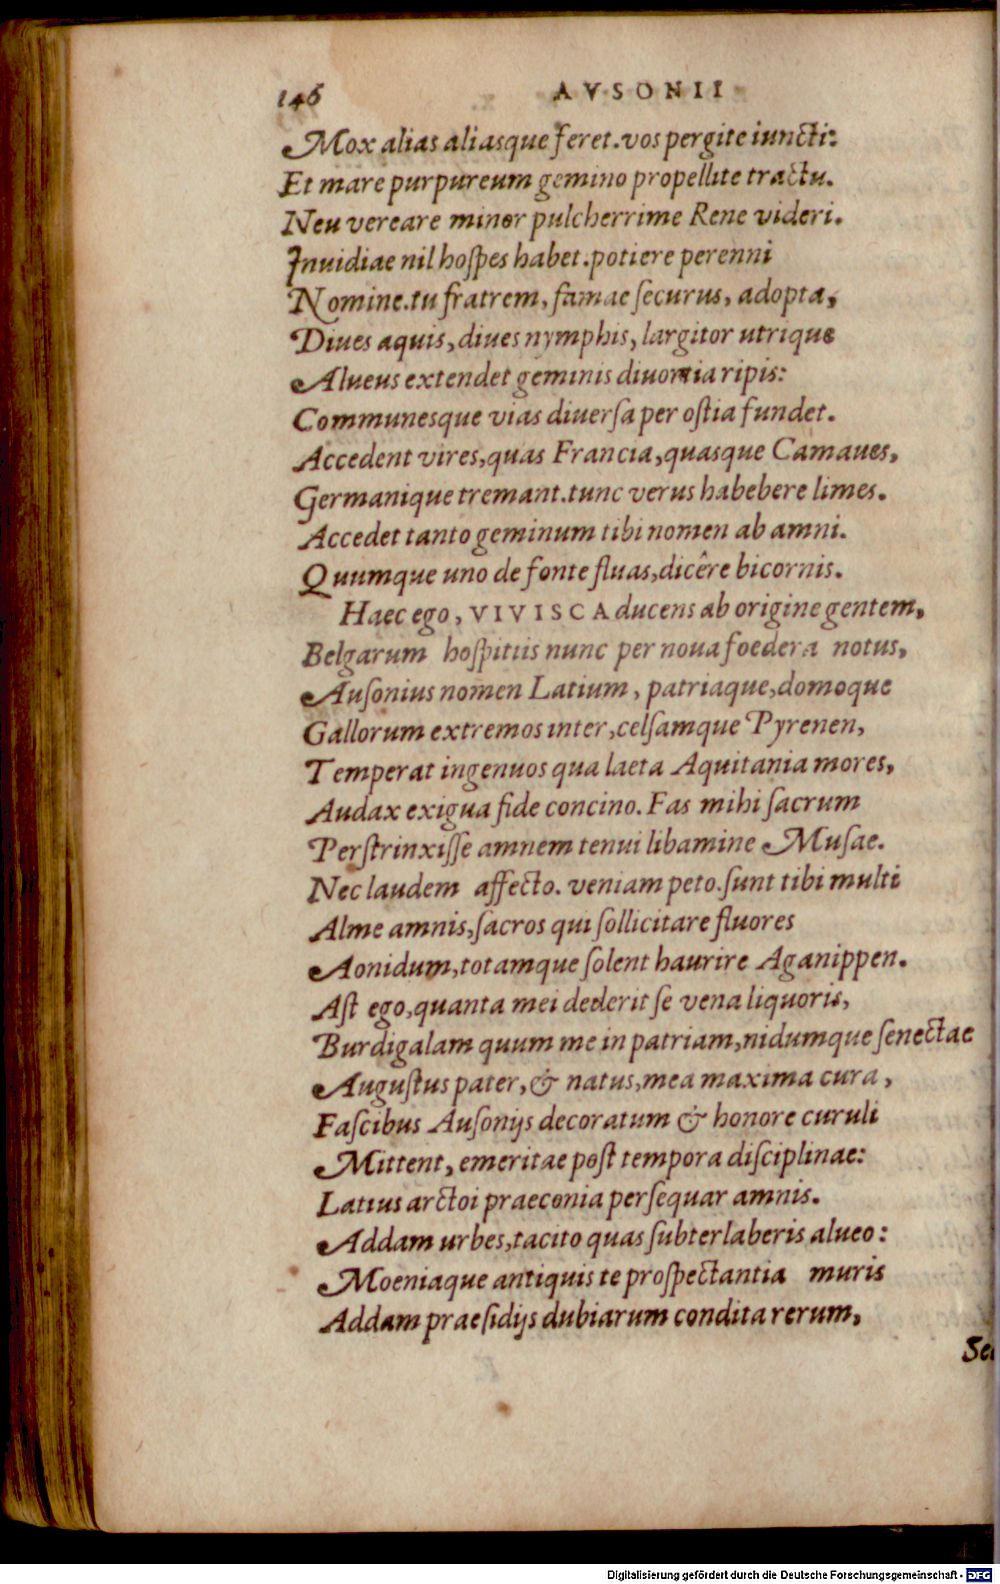 146 AVSONII
Mox alias aliasque feret. vos pergite iuncti:
Et mare purpureum gemino propellite tractu.
Neu vereare minor pulcherrime Rene videri.
Inuidiae nil hospes habet. potiere perenni
Nomine. tu fratrem, famae securus, adopta,
Diues aquis, diues nymphis, largitor utrique
Alueus extendet geminis diuortia ripis:
Communesque vias diuersa per ostia fundet.
Accedent vires, quas Francia, quasque Camaues,
Germanique tremant. tunc verus habebere limes.
Accedet tanto geminum tibi nomen ab amni.
Quumque uno de fonte fluas, dicêre bicornis.
Haec ego, VIVISCA ducens ab origine gentem,
Belgarum hospitiis nunc per noua foedera notus,
Ausonius nomen Latium, patriaque, domoque
Gallorum extremos inter, celsamque Pyrenen,
Temperat ingenuos qua laeta Aquitania mores,
Audax exigua fide concino. Fas mihi sacrum
Perstrinxisse amnem tenui libamine Musae.
Nec laudem affecto. veniam peto. sunt tibi multi
Alme amnis, sacros qui sollicitare fluores
Aonidum, totamque solent haurire Aganippen.
Ast ego, quanta mei dederit se vena liquoris,
Burdigalam quum me in patriam, nidumque senectae
Augustus pater, & natus, mea maxima cura,
Fascibus Ausonijs decoratum & honore curuli
Mittent, emeritae post tempora disciplinae:
Latius arctoi praeconia persequar amnis.
Addam urbes, tacito quas subterlaberis alueo:
Moeniaque antiquis te prospectantia muris
Addam praesidijs dubiarum condita rerum,
Sed
Digitalisierung gefördert durch die Deutsche Forschungsgemeinschaft - DFG